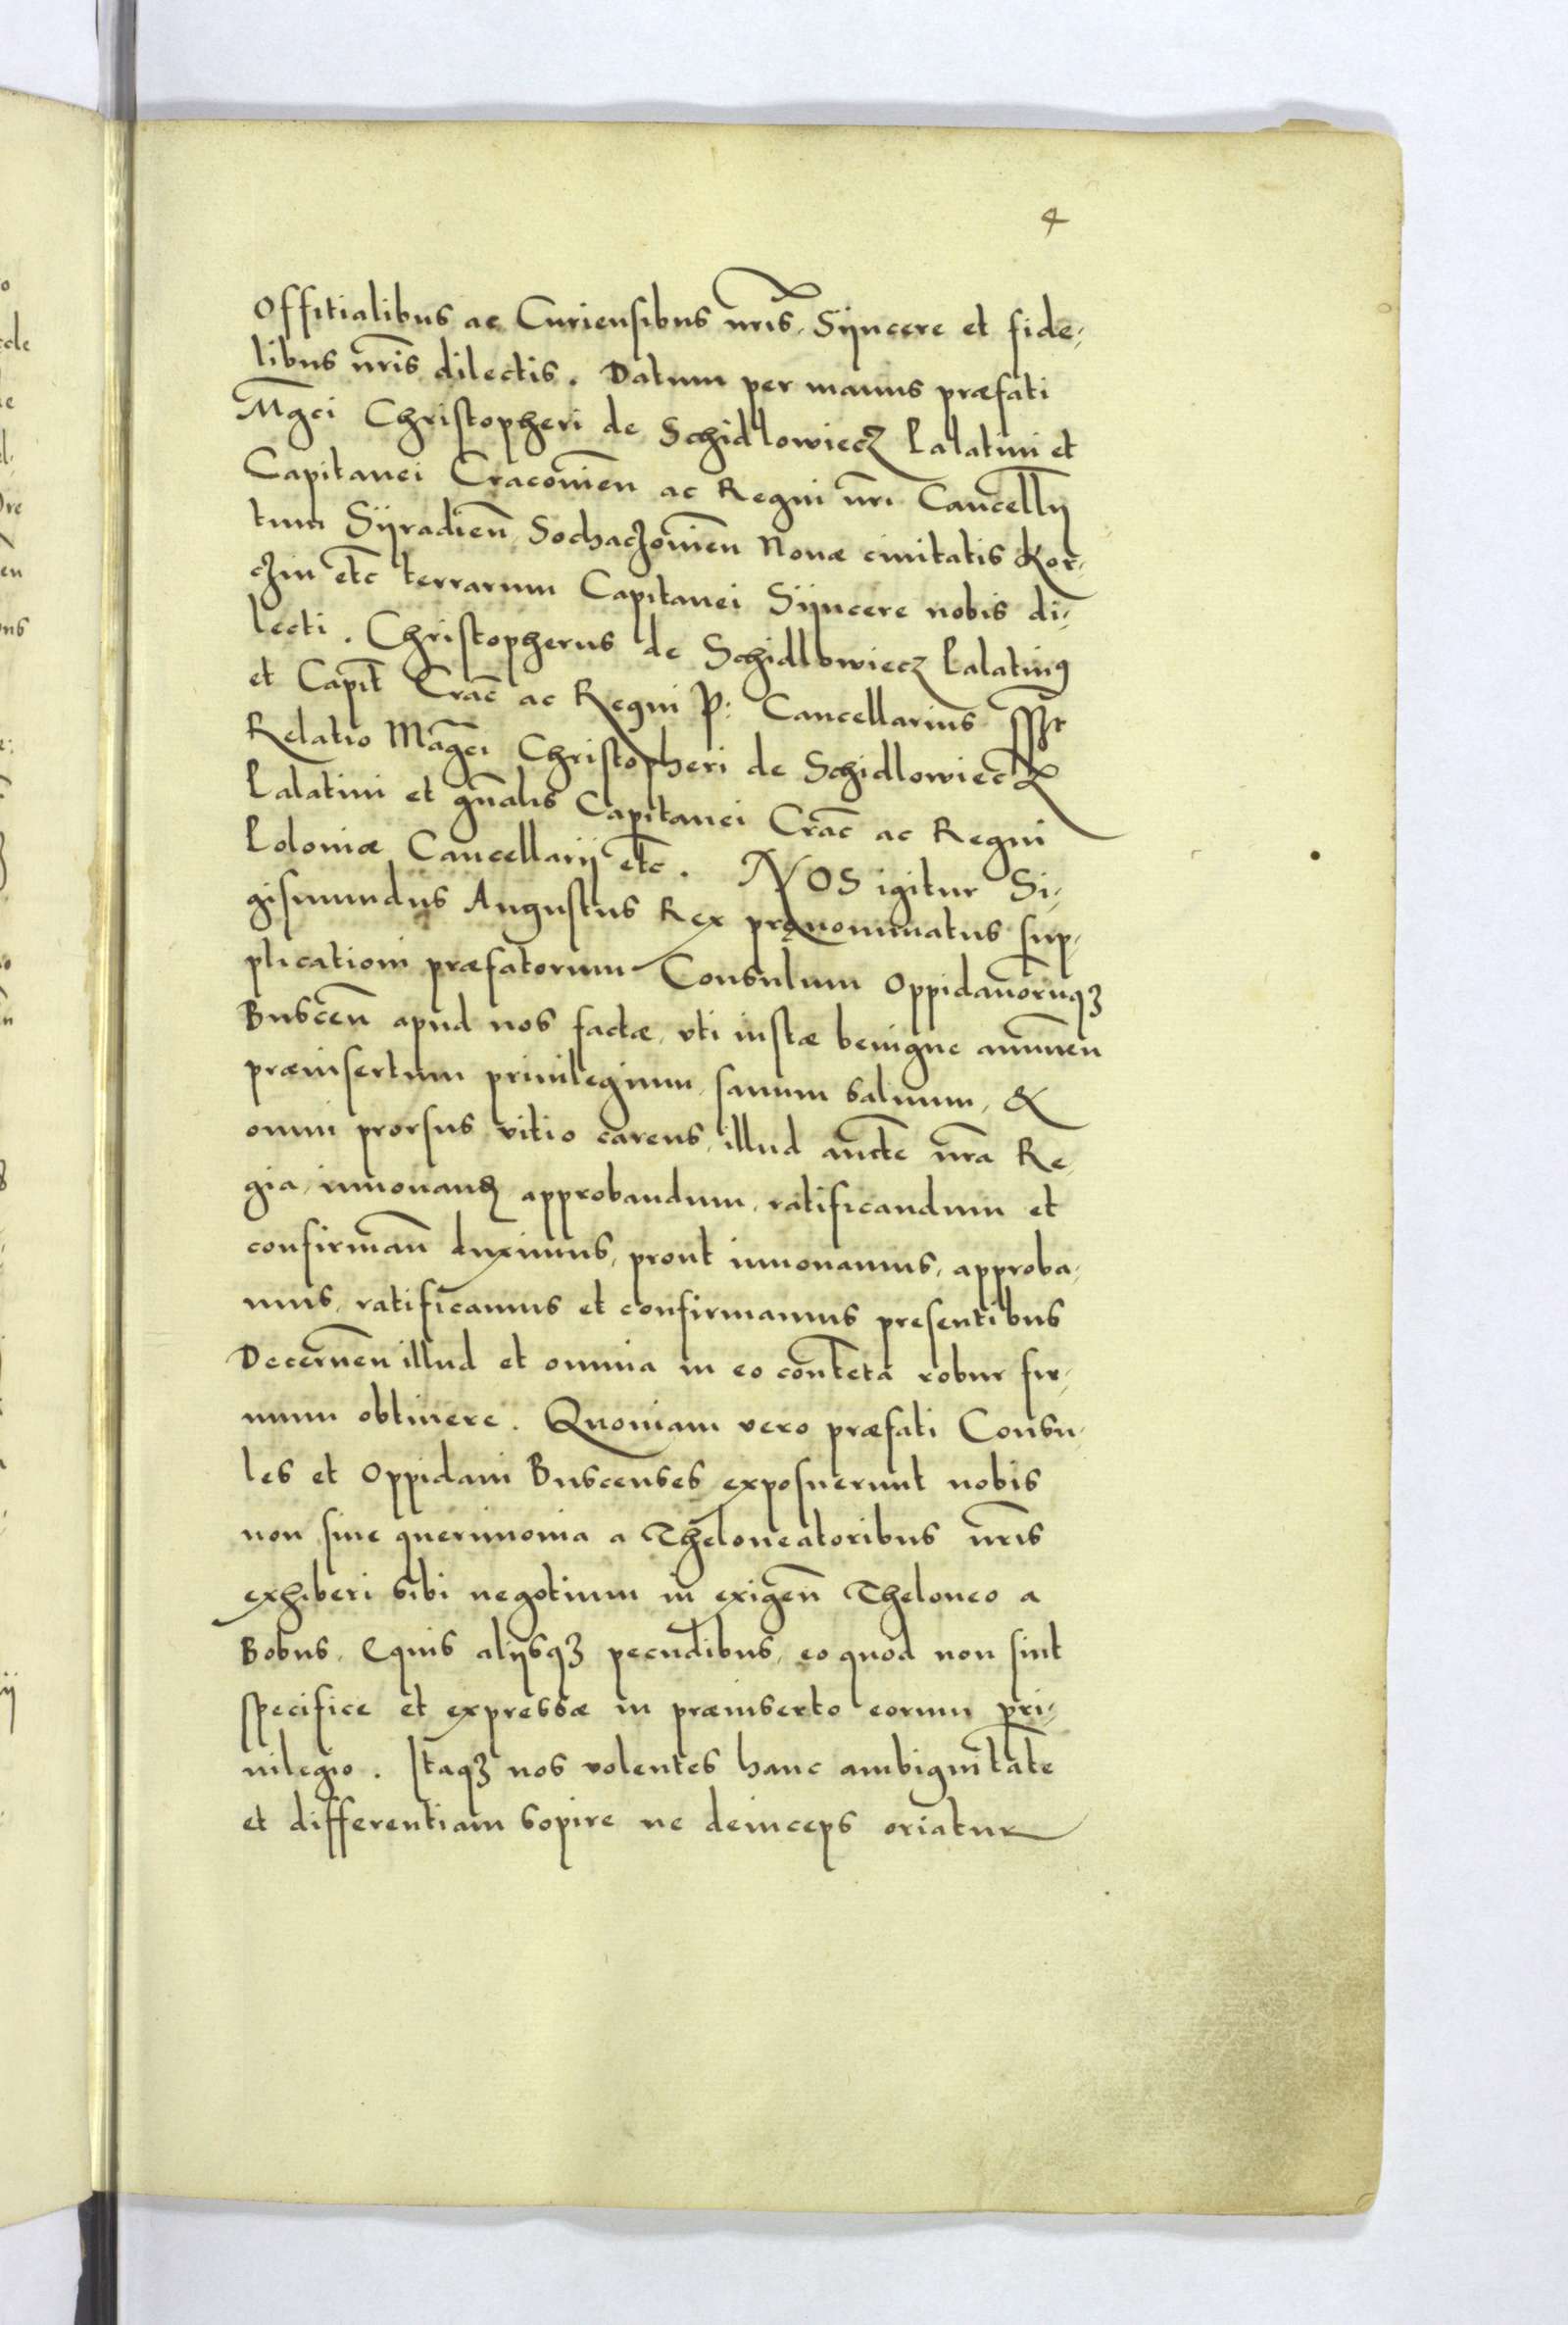 4
Offitialibus ac Curiensibus nr̃is, Sÿncere et fide,
libus nr̃is dilectis. Datum per manus præfati
Mg̃ci Christopheri de Schidlowiecz Palatini et
Capitanei Cracovieñ ac Regni nr̃i Cancellÿ
tum Sÿradieñ, Sochaczovieñ Novæ civitatis Kor,
czin etc̃ terrarum Capitanei Sÿncere nobis di,
lecti. Christopherus de Schidlowiecz Palatinꝰ
et Capit̃ Crac̃ ac Regni P: Cancellarius sst
Relatio Mag̃ci Christopheri de Schidlowiecz
Palatini et gñalis Capitanei Crac̃ ac Regni
Poloniæ Cancellarÿ etc̃. NOS igitur Si,
gismundus Augustus Rex prænominatus sup,
plicationi præfatorum Consulum Oppidanoruqꝫ
Busceñ apud nos factæ, uti iustæ benigne annueñ
præinsertum privilegium, sanum salvum, &
omni prorsus vitio carens, illud auctẽ nr̃a Re,
gia, innovanđ approbandum, ratificandum et
confirmañ duximus, prout innovamus, approba,
mus, ratificamus et confirmamus presentibus
Decerneñ illud et omnia in eo contẽta robur fir,
mum obtinere. Quoniam vero præfati Consu,
les et Oppidani Buscenses exposuerunt nobis
non sine querimonia a Theloneatoribus nr̃is
exhiberi sibi negotium in exigeñ Theloneo a
Bobus, Equis alÿsqꝫ pecudibus, eo quod non sint
specifice et expressæ in præinserto eorum pri,
vilegio. Itaqꝫ nos volentes hanc ambiguitatẽ
et differentiam sopire ne deinceps oriatur